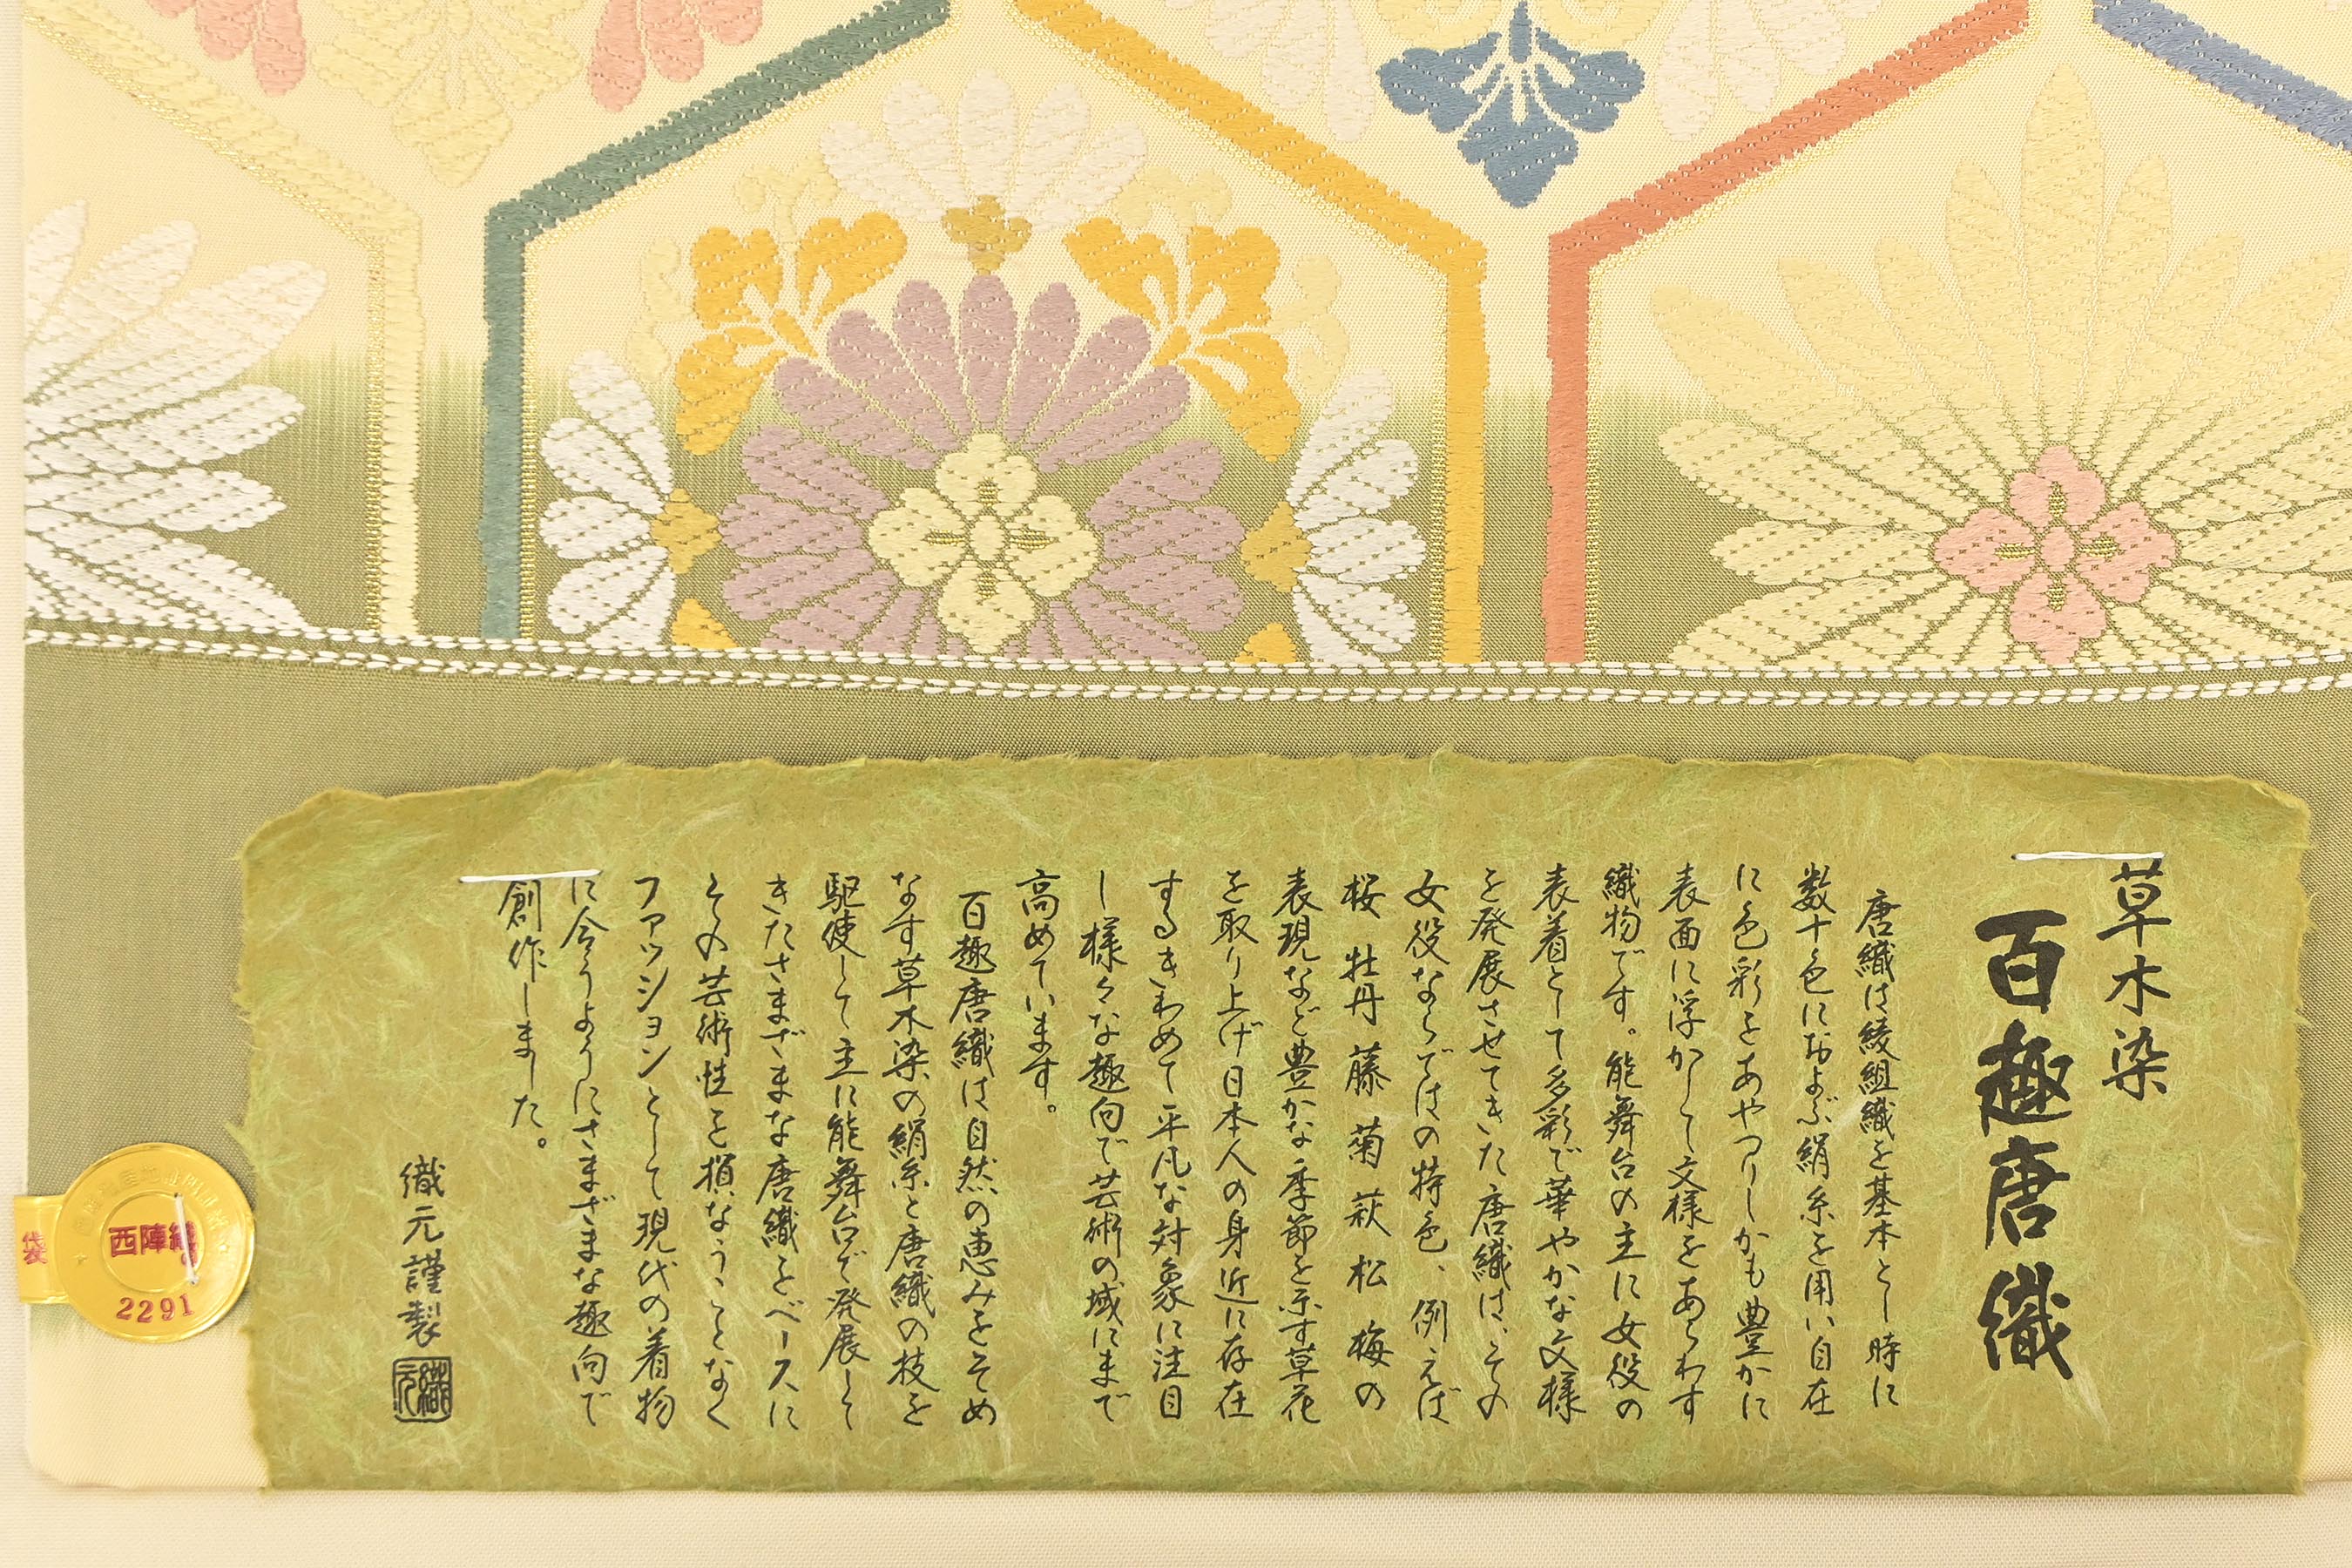 草木染
百趣唐織
唐織は綾組織を基本とし時に
数十色におよぶ絹糸を用い自在
に色彩をあやつりしかも豊かに
表面に浮かして文様をあらわす
織物です。能舞台の主に女役の
表着として多彩で華やかな文様
を発展させてきた唐織は、その
女役ならではの特色、例えば
桜 牡丹 藤 菊 萩 松 梅の
表現など豊かな季節を示す草花
を取り上げ日本人の身近に存在
するきわめて平凡な対象に注目
し様々な趣向で芸術の域にまで
高めています。
百趣唐織は自然の恵みをそめ
なす草木染の絹糸と唐織の技を
駆使して主に能舞台で発展して
きたさまざまな唐織をベースに
その芸術性を損なうことなく
ファッションとして現代の着物
に合うようにさまざまな趣向で
創作しました。
織元謹製
織元
袋
西陣織
2291